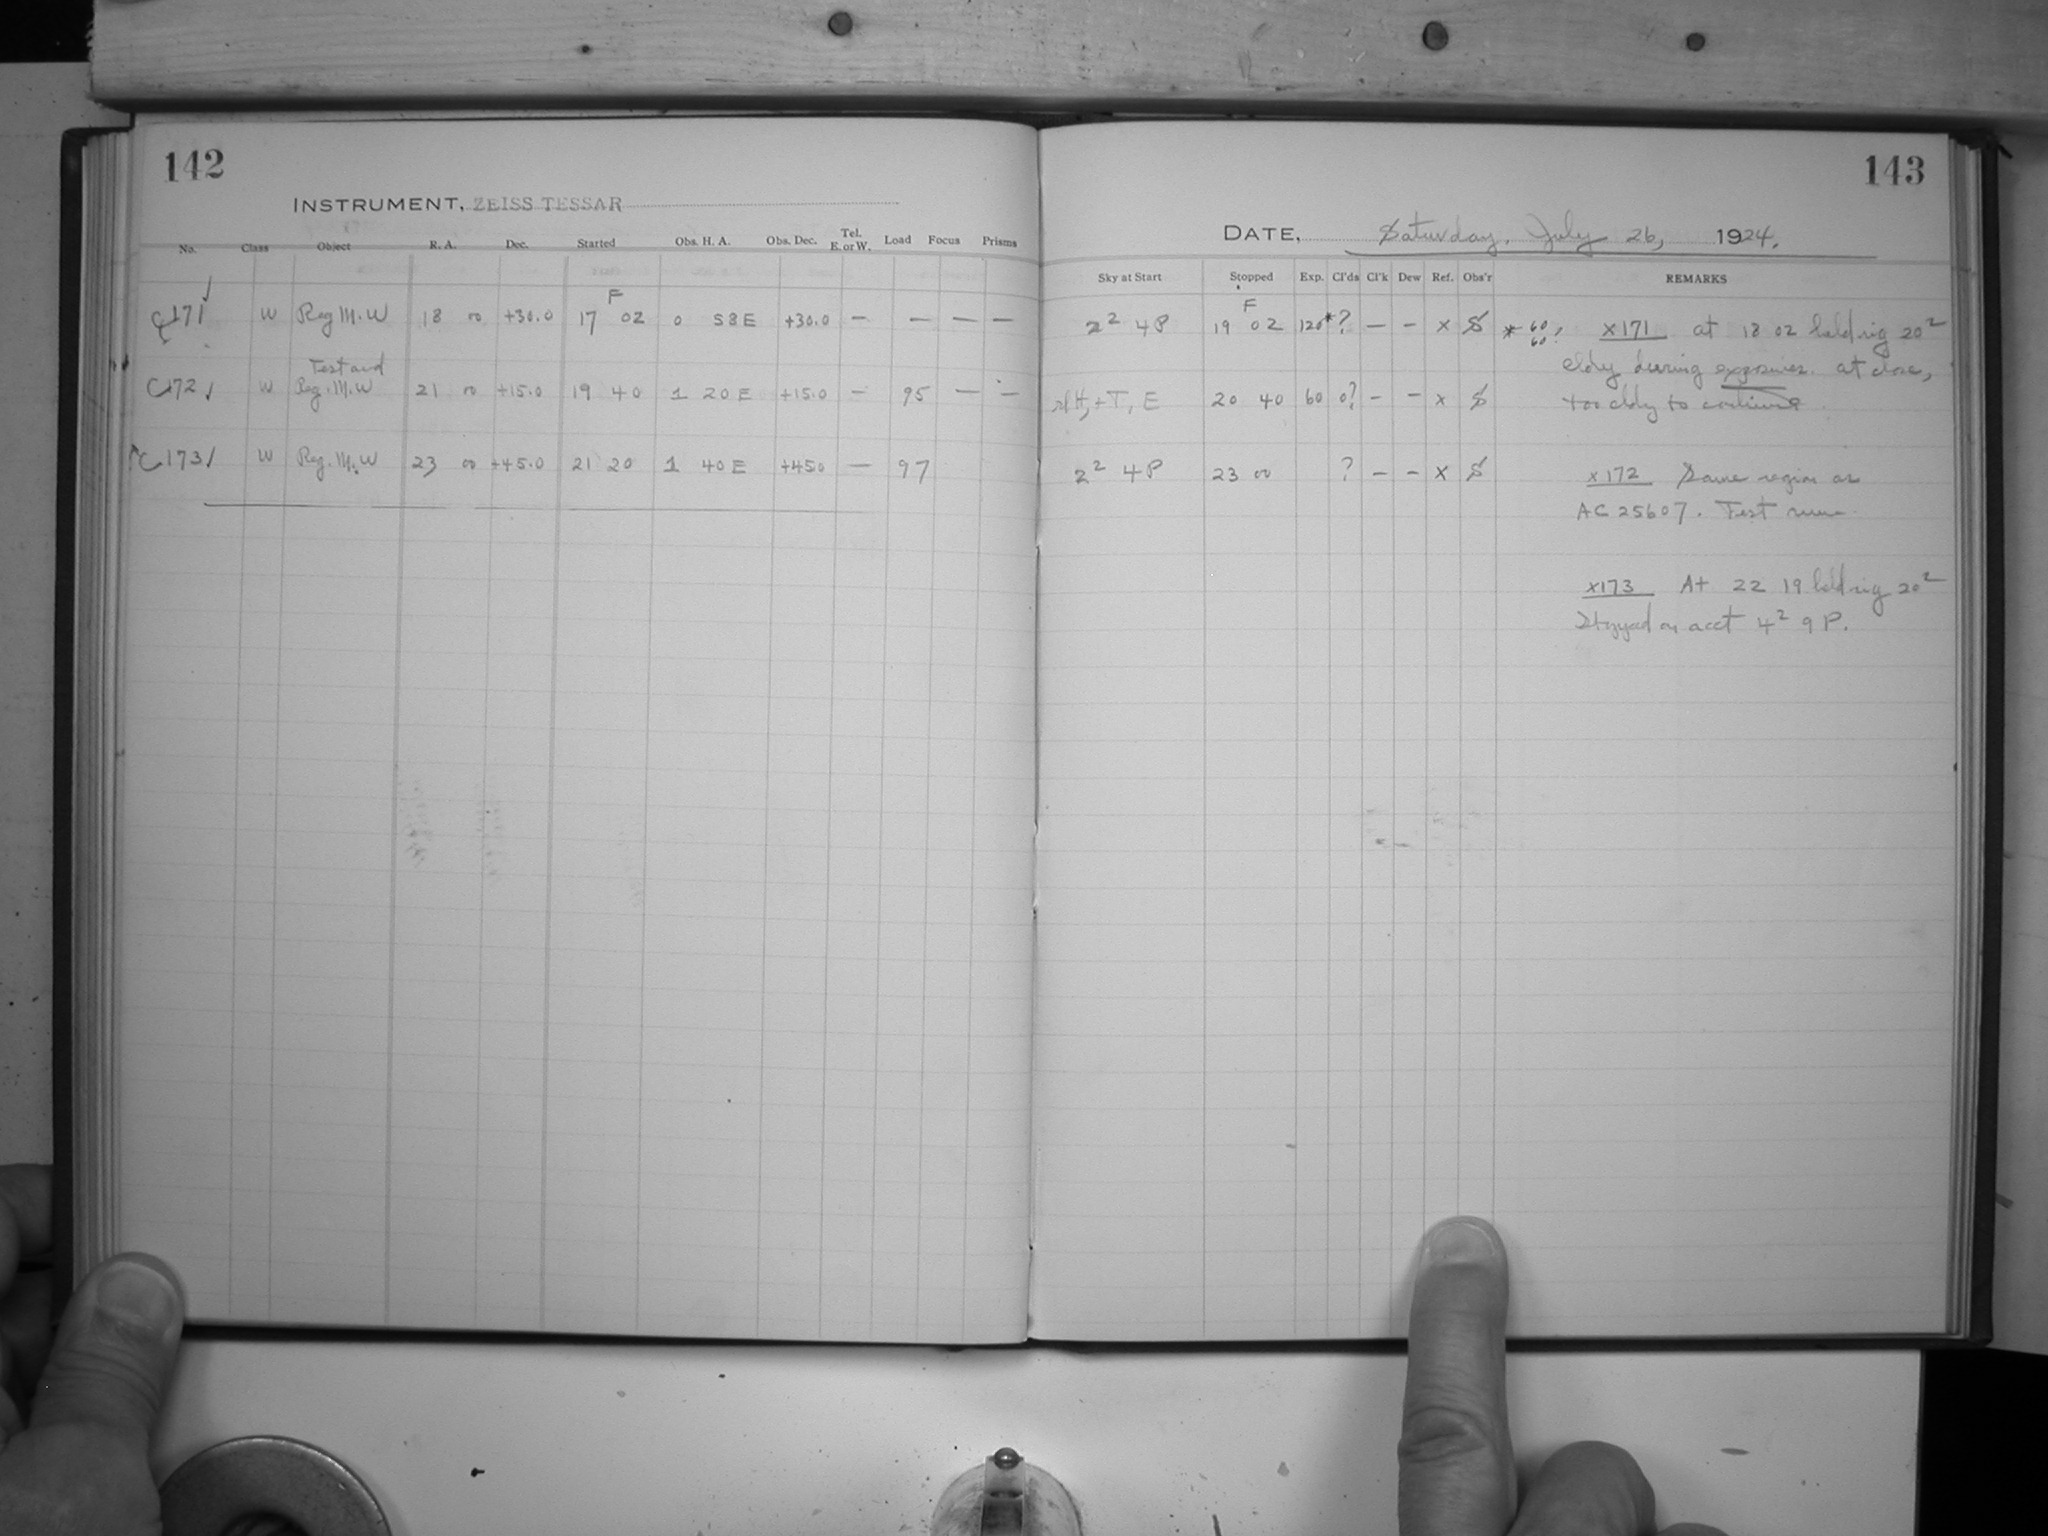 142
INSTRUMENT, ZEISS TESSAR
No. Class Object R. A. Dec. Started Obs. H. A. Obs. Dec. Tel. E. or W. Load Focus Prisms
F
C171 ✓ W Reg M.W 18 00 +30.0 17 02 0 58 E +30.0 — — — —
Test and
C172 ✓ W Reg. M. W 21 00 +15.0 19 40 1 20 E +15.0 — 95 — —
C173 ✓ W Reg. M. W 23 00 +45.0 21 20 1 40 E +450 — 97
143
DATE, Saturday, July 26, 1924.
Sky at Start Stopped Exp. Cl'ds Cl'k Dew Ref. Obs'r REMARKS
F
2² 4P 19 02 120* ? — — x
* 60 60 ? X171 at 18 02 hold rig 20²
cldy during exposures. at close,
H, + T, E 20 40 60 0? — — x
too cldy to continue.
2² 4P 23 00 ? — — x
x172 Same region as
AC 25607. Test
x173 At 22 19 hold rig 20²
Stopped on acct 4² 9 P.